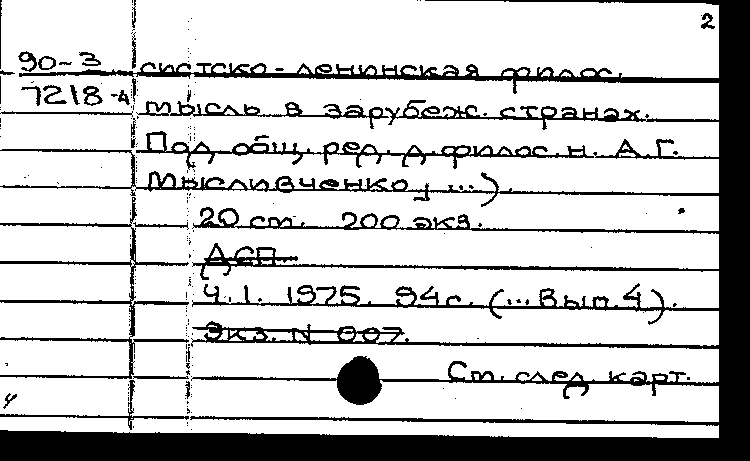 2
90-3 систско-ленинская филос.
7218-4 мысль в зарубеж. странах.
Под общ. ред. д. филос. н. А.Г.
Мысливченко; ...).
20 см. 200 экз.
ДСП.
Ч.1. 1975. 94с. (...Вып.4).
Экз. N 007.
См. след. карт.